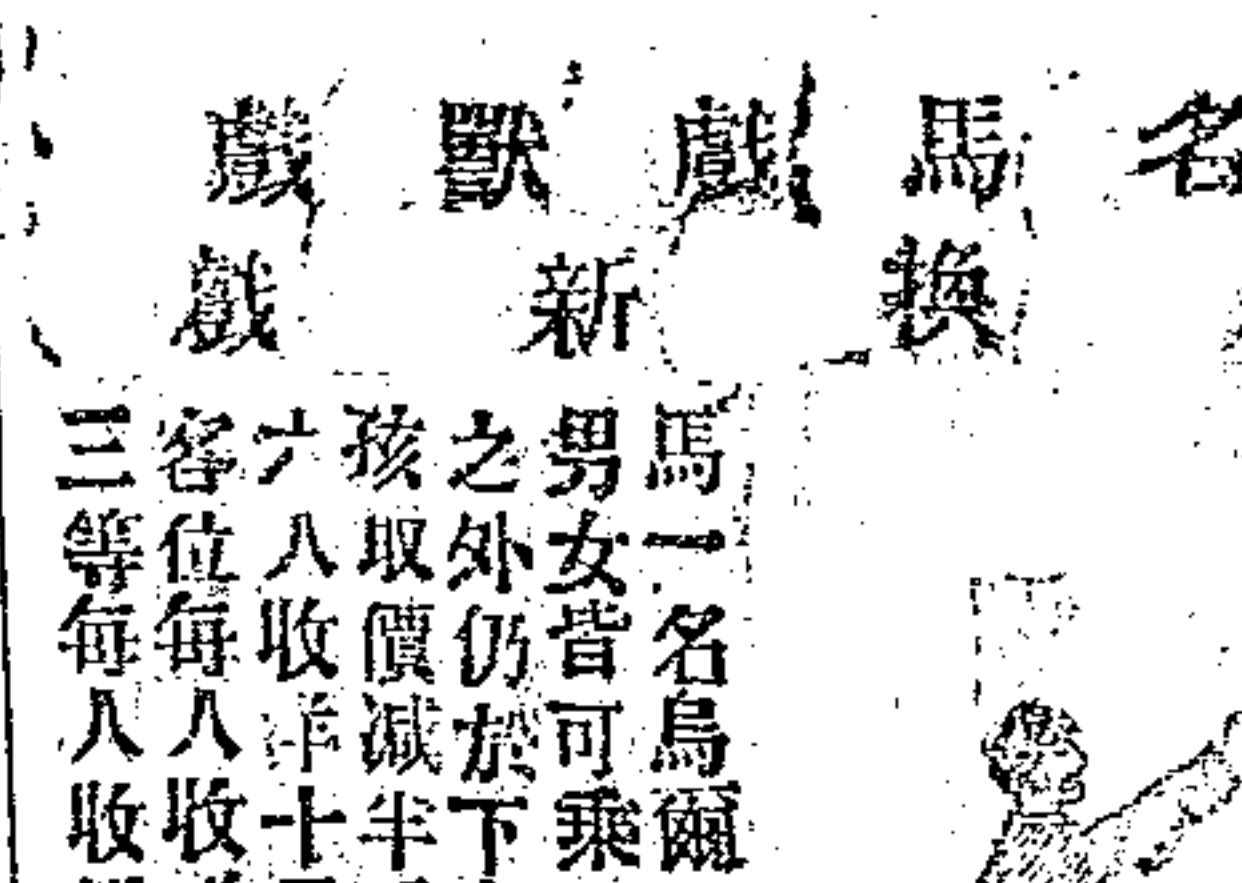 名馬戲獸戲
換新戲
馬一名烏爾
男女皆可乘
之外仍於下
孩取價減半
六人收洋十
容位每人收
三等每人收